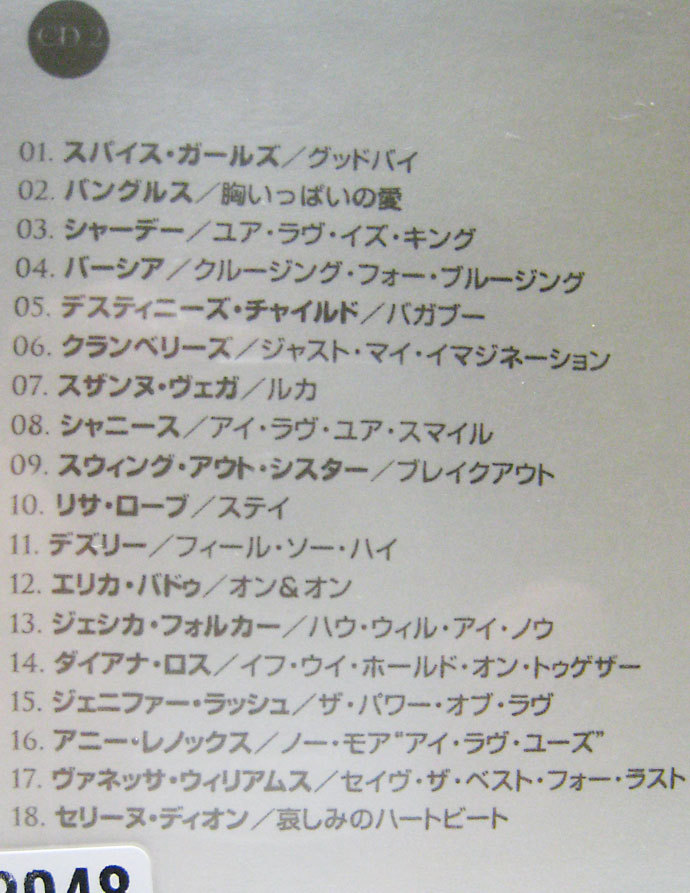 CD 2
01. スパイス・ガールズ／グッドバイ
02. バングルス／胸いっぱいの愛
03. シャーデー／ユア・ラヴ・イズ・キング
04. バーシア／クルージング・フォー・ブルージング
05. デスティニーズ・チャイルド／バガブー
06. クランベリーズ／ジャスト・マイ・イマジネーション
07. スザンヌ・ヴェガ／ルカ
08. シャニース／アイ・ラヴ・ユア・スマイル
09. スウィング・アウト・シスター／ブレイクアウト
10. リサ・ローブ／ステイ
11. デズリー／フィール・ソー・ハイ
12. エリカ・バドゥ／オン&オン
13. ジェシカ・フォルカー／ハウ・ウィル・アイ・ノウ
14. ダイアナ・ロス／イフ・ウイ・ホールド・オン・トゥゲザー
15. ジェニファー・ラッシュ／ザ・パワー・オブ・ラヴ
16. アニー・レノックス／ノー・モア“アイ・ラヴ・ユーズ”
17. ヴァネッサ・ウィリアムス／セイヴ・ザ・ベスト・フォー・ラスト
18. セリーヌ・ディオン／哀しみのハートビート